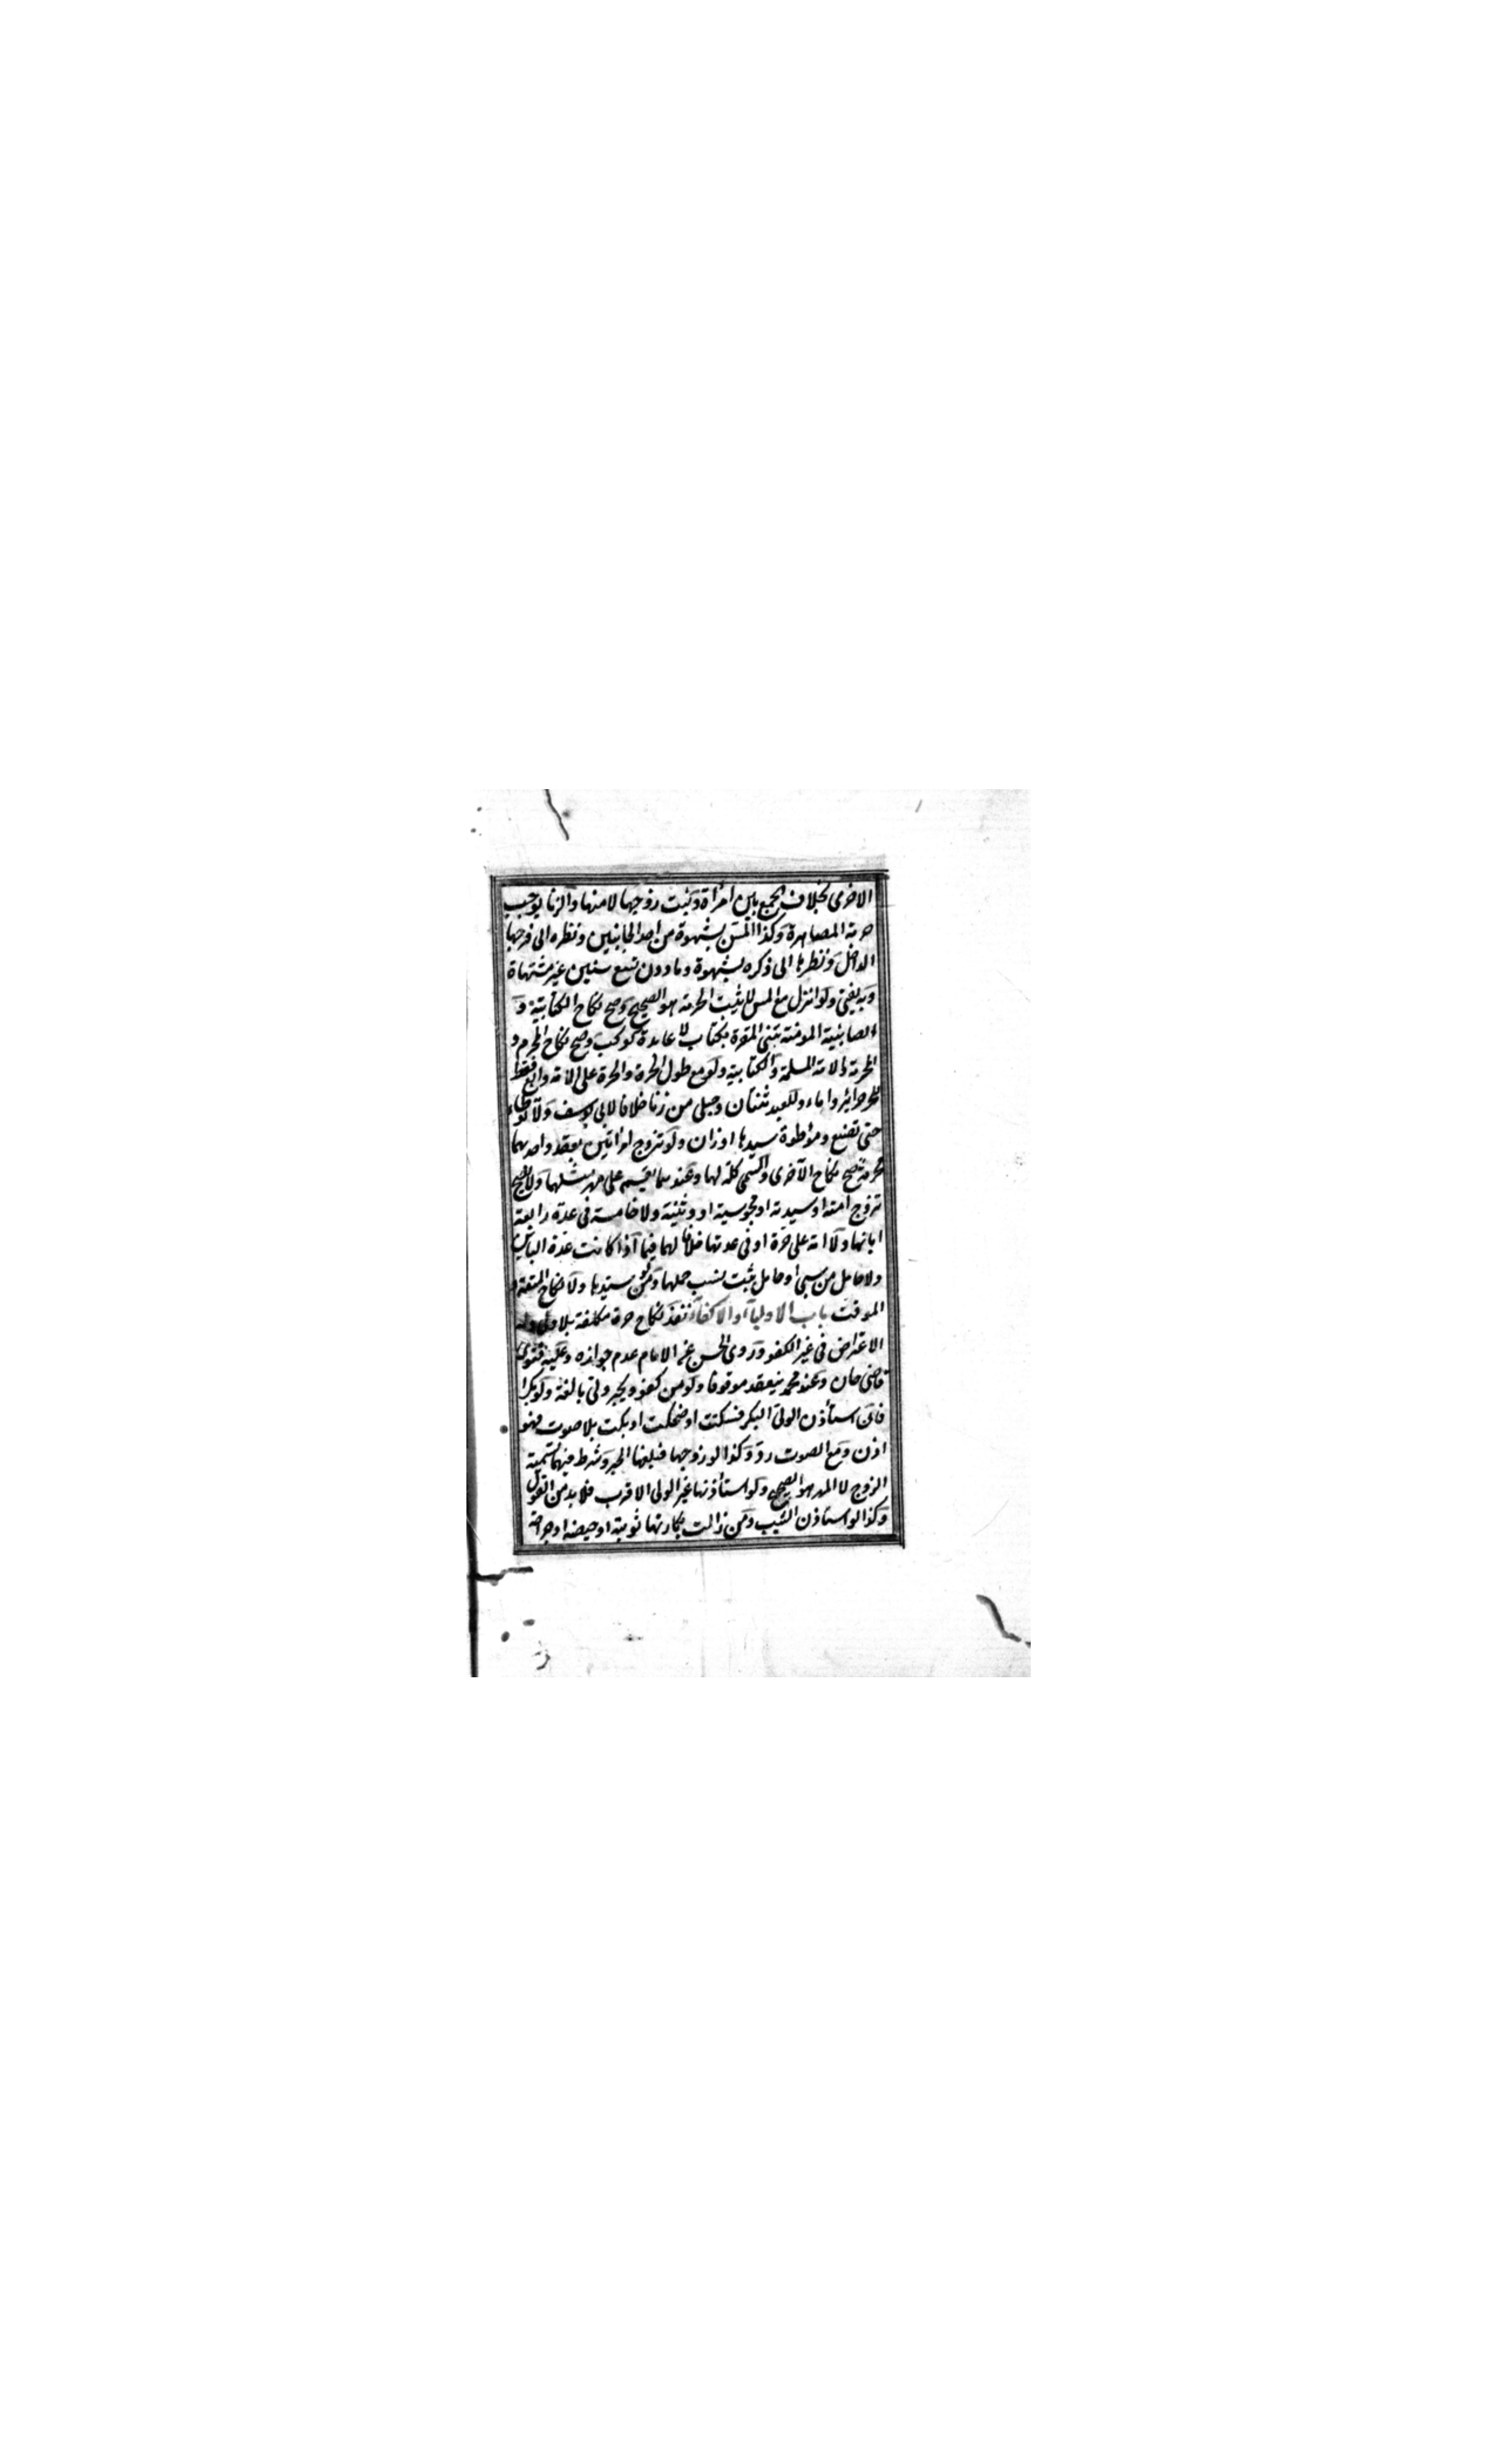 الاخرى بخلاف الجمع بين امرأة وبنت زوجها لا منها والزنا يوجب
حرمة المصاهرة وكذا المس بشهوة من احد الجانبين ونظره الى فرجها
الداخل ونظرها الى ذكره بشهوة وما دون تسع سنين غير مشتهاة
وبه يفتى ولو انزل مع المس لا يثبت الحرمة هو الصحيح وصح نكاح الكتابية و
الصابئية المؤمنة بنبي المقرة بكتاب لا عابدة كوكب وصح نكاح المحرم و
المحرمة والامة المسلمة والكتابية ولو مع طول الحرة والحرة على الامة واربع فقط
للحر حرائر واماء وللعبد ثنتان وحبلى من زنا خلافا لابي يوسف ولا توطاء
حتى تضع وموطوة سيدها او زان ولو تزوج امراتين بعقد واحديهما
محرمة صح نكاح الاخرى والمسمى كله لها وعندهما يقسم على مهر مثلهما ولا يصح
تزوج امته او سيدته او مجوسية او وثنية ولا خامسة في عدة رابعة
ابانها ولا امة على حرة او في عدتها خلافا لهما فيما اذا كانت عدة البائن
ولا حامل من سبي او حامل ثبت نسب حملها ولو من سيدها ولا نكاح المتعة و
الموقت باب الاولياء والاكفاء نفذ نكاح حرة مكلفة بلا ولي وله
الاعتراض في غير الكفو وروى الحسن عن الامام عدم جوازه وعليه فتوى
قاضى خان وعند محمد ينعقد موقوفا ولو من كفو ولا يجبر ولي بالغة ولو بكرا
فان استأذن الولي البكر فسكتت او ضحكت او بكت بلا صوت فهو
اذن ومع الصوت رد وكذا لو زوجها فبلغها الخبر وشرط فيهما تسمية
الزوج لا المهر هو الصحيح ولو استأذنها غير الولي الاقرب فلا بد من القول
وكذا لو استاذن الثيب ومن زالت بكارتها بوثبة او حيضة او جراحة